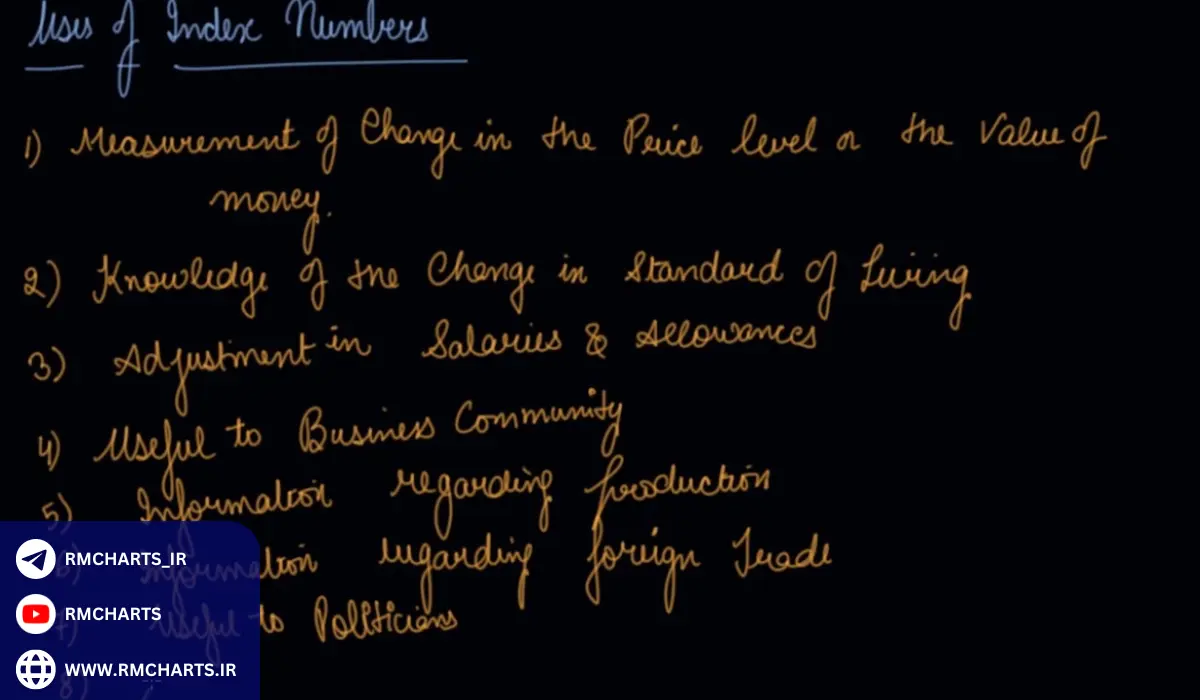 Uses of Index Numbers
1) Measurement of Change in the Price level or the Value of
money.
2) Knowledge of the Change in Standard of Living
3) Adjustment in Salaries & Allowances
4) Useful to Business Community
5) Information regarding production
6) Information regarding foreign Trade
7) Useful to Politicians
8)
RMCHARTS_IR
RMCHARTS
WWW.RMCHARTS.IR